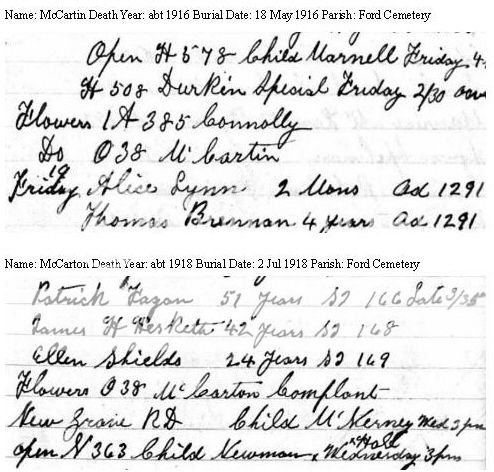 Name: McCartin Death Year: abt 1916 Burial Date: 18 May 1916 Parish: Ford Cemetery
Open H 578 Child Marnell Friday 4
H 508 Durkin Spesial Friday 2/30
Flowers 1A 385 Connolly
Do O38 McCartin
19
Friday Alice Lynn 2 Mons ad 1291
Thomas Brennan 4 years ad 1291
Name: McCarton Death Year: abt 1918 Burial Date: 2 Jul 1918 Parish: Ford Cemetery
Patrick Fagan 51 years S2 166 Late 3/35
James H Hesketh 42 years S2 168
Ellen Shields 24 years S2 169
Flowers O38 McCarton Complant
New Grave RD Child McNerney Wed 3pm
open N 363 Child Newman Wednesday 3pm